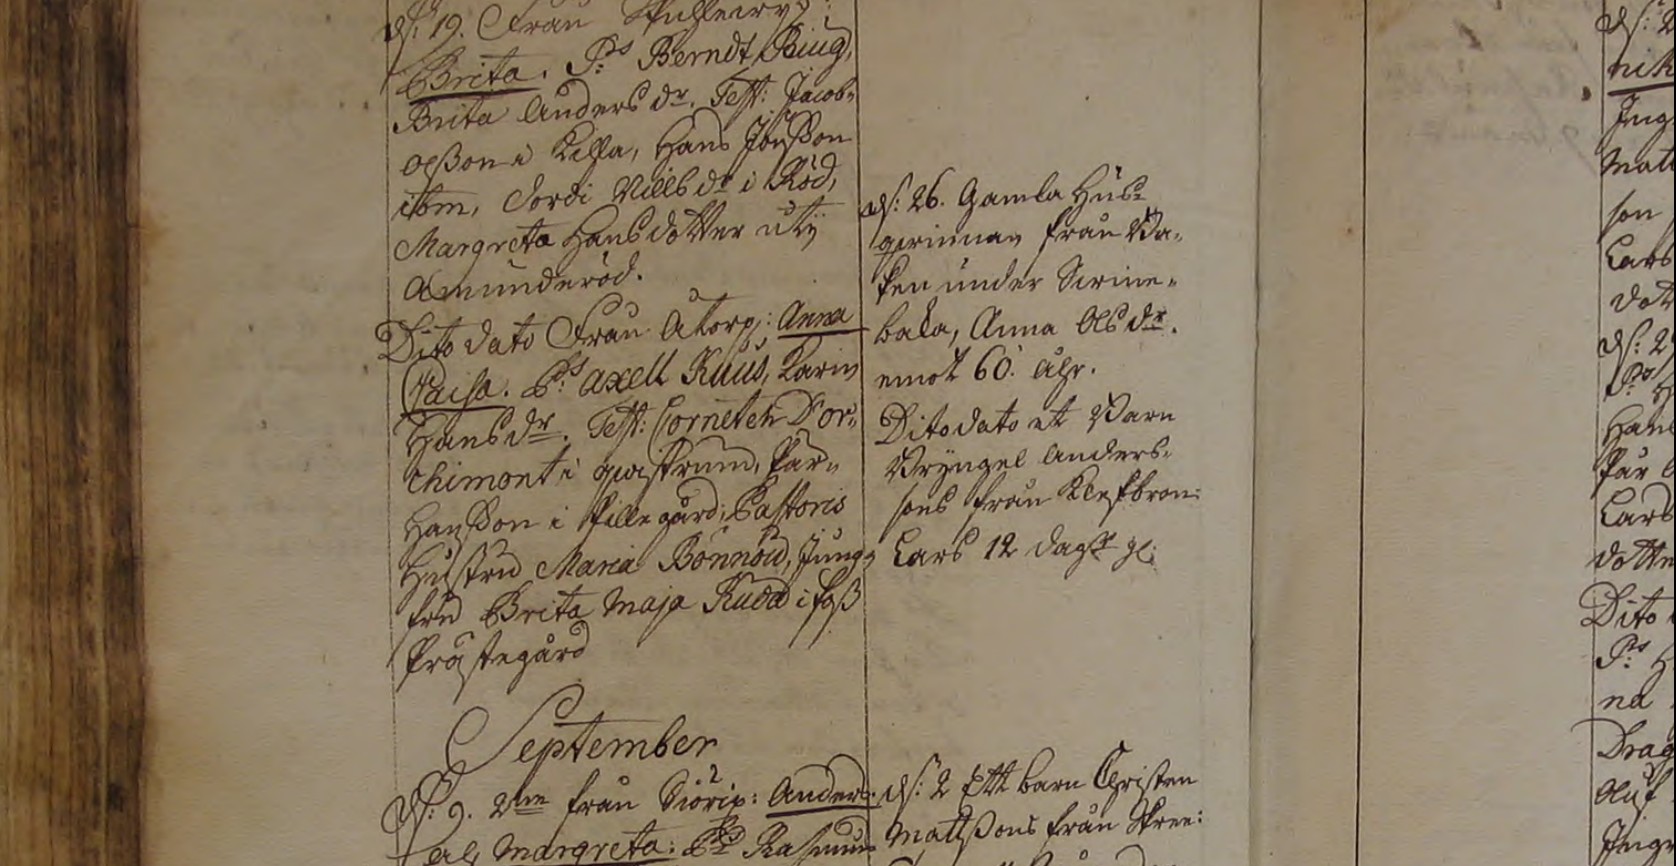 ds: 19. Från
Brita. Ps Berndt Biug,
Brita Anders dr. Test: Jacob
Olßon i Killa, Hans Jönßon
ibm, Jordi Nills dr i Röd,
Margreta Hansdotter uti
Amunderöd.
Dito dato från Atorp: Anna
Caisa. Ps Axell Ruus, Karin
Hans dr. Test: Cornelch Dor
chimont i Qvistrum, Pär
Hanßon i Pillegård, Pastoris
Hustru Maria Bönnöw, Jung
fru Brita Maja Ruus i Foß
Prästegård
September
ds: 9. 2ne från Siörip: Anders
och Margreta: Ps Rasmus
ds: 26. Gamla Hus
qvinnan från Ba
ken under Svine
baka, Anna Ols dr.
emot 60. åhr.
Dito dato ett Barn
Bryngel Anders
sons från Klefbron:
Lars 12 dagr gl:
ds: 2 Ett barn Christen
Mattßons från
ds: 2
Ing
Matt
son
Lars
dott
ds: 2
Ps H
Hans
Pär
Lars
dotte
Dito
Ps H
na
Drag
Oluf
Ing